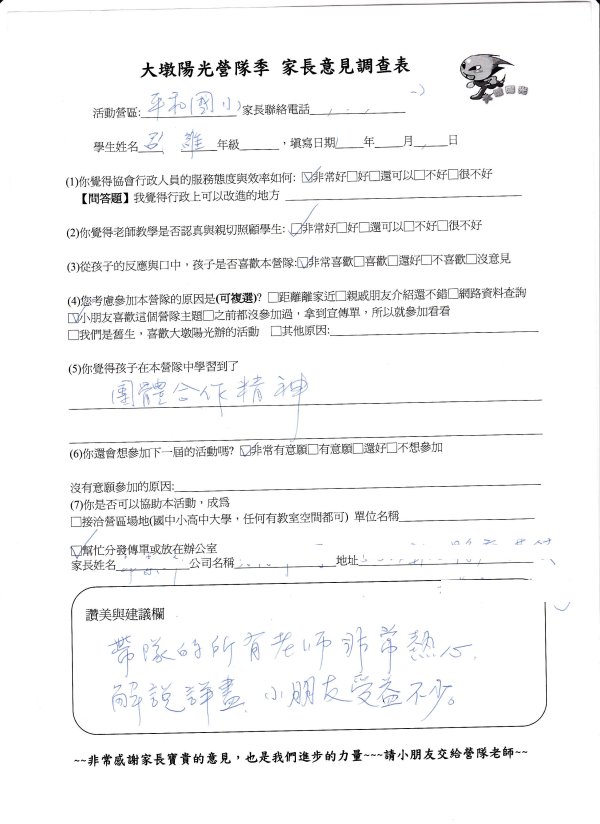 大墩陽光營隊季 家長意見調查表
活動營區:平和國小家長聯絡電話
學生姓名 雛 年級 ，填寫日期 年 月 日
(1)你覺得協會行政人員的服務態度與效率如何: ☑非常好□好□還可以□不好□很不好
【問答題】我覺得行政上可以改進的地方
(2)你覺得老師教學是否認真與親切照顧學生: ☑非常好□好□還可以□不好□很不好
(3)從孩子的反應與口中，孩子是否喜歡本營隊:☑非常喜歡□喜歡□還好□不喜歡□沒意見
(4)您考慮參加本營隊的原因是(可複選)? □距離離家近□親戚朋友介紹還不錯□網路資料查詢
☑小朋友喜歡這個營隊主題□之前都沒參加過，拿到宣傳單，所以就參加看看
□我們是舊生，喜歡大墩陽光辦的活動 □其他原因:
(5)你覺得孩子在本營隊中學習到了
團體合作精神
(6)你還會想參加下一屆的活動嗎? ☑非常有意願□有意願□還好□不想參加
沒有意願參加的原因:
(7)你是否可以協助本活動，成為
□接洽營區場地(國中小高中大學，任何有教室空間都可) 單位名稱
☑幫忙分發傳單或放在辦公室
家長姓名 公司名稱 地址
讚美與建議欄
帶隊的所有老师非常熱心.
解說詳盡，小朋友受益不少。
~~非常感謝家長寶貴的意見，也是我們進步的力量~~~請小朋友交給營隊老師~~